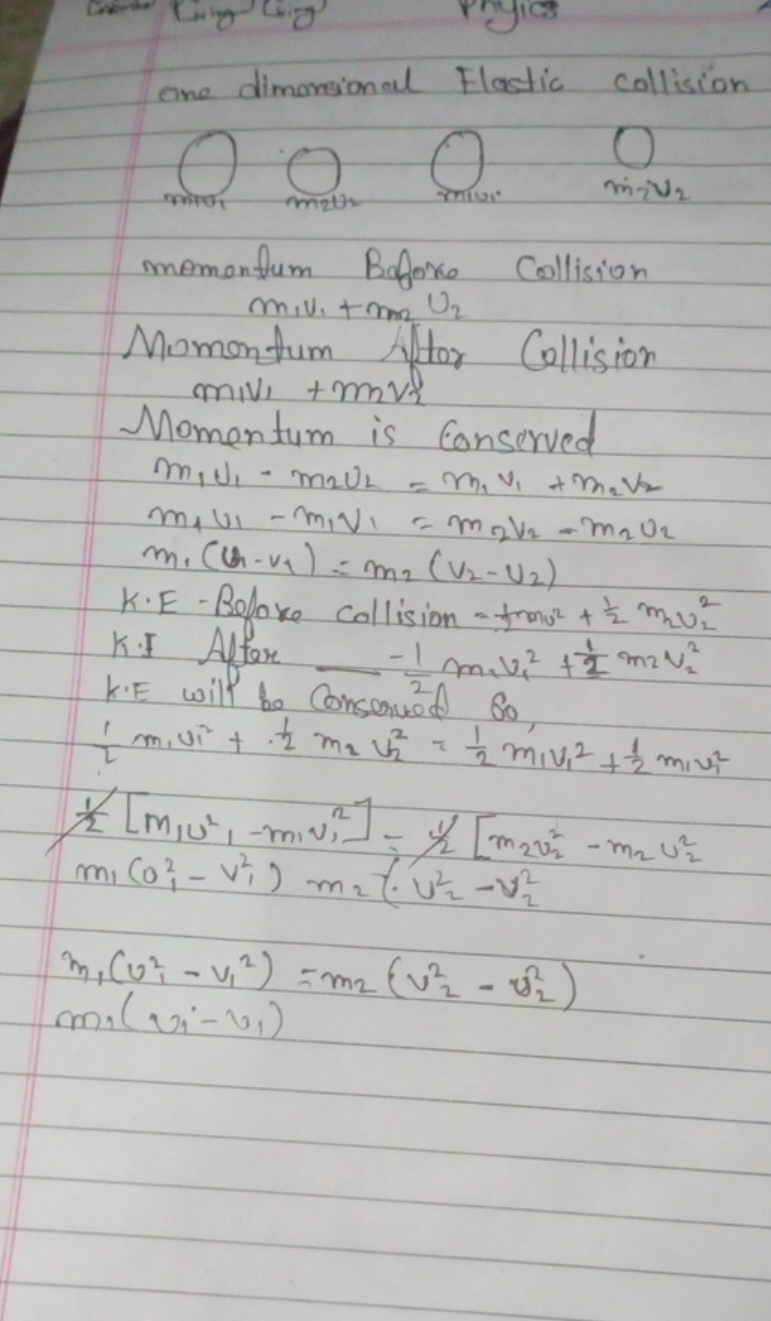 Physics
one dimonsional Elastic collision
m1υ1 m2υ2 m1υ1 m2υ2
momentum Before Collision
m1v1 + m2 υ2
Momontum After Collision
m1v1 + m2v2
Momentum is Conserved
m1υ1 - m2υ2 = m1 v1 + m2v2
m1υ1 - m1v1 = m2v2 - m2υ2
m1 (υ1 - v1) = m2 (v2 - υ2)
K.E - Before collision = ½mυ² + ½ m2υ2²
K.E After — = ½ m1v1² + ½ m2v2²
K.E will be Conserved So,
½ m1υ1² + ½ m2 υ2² = ½ m1v1² + ½ m1v1²
½ [m1υ²1 - m1v1²] = ½ [m2v2² - m2υ2²
m1 (υ1² - v1²) m2 (υ2² - v2²
m1 (υ1² - v1²) = m2 (v2² - υ2²)
m1 (υ1 - v1)